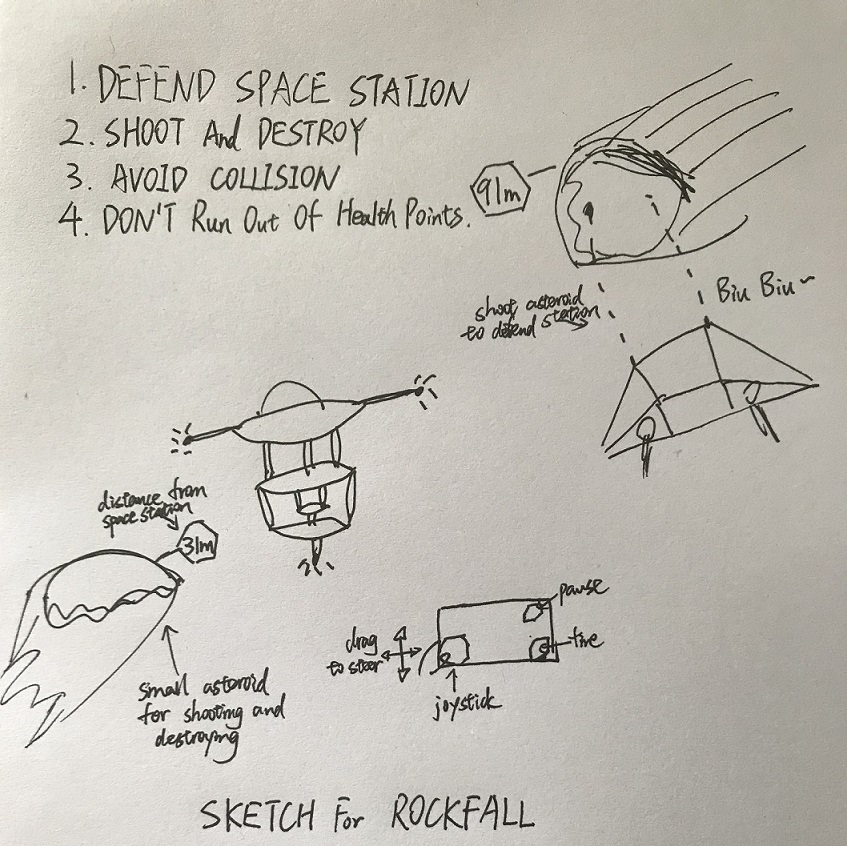 1. DEFEND SPACE STATION
2. SHOOT And DESTROY
3. AVOID COLLISION
4. DON'T Run Out Of Health Points.
91m
shoot asteroid
to defend station
Biu Biu~
distance from
space station
31m
small asteroid
for shooting and
destroying
pause
fire
drag
to steer
joystick
SKETCH For ROCKFALL